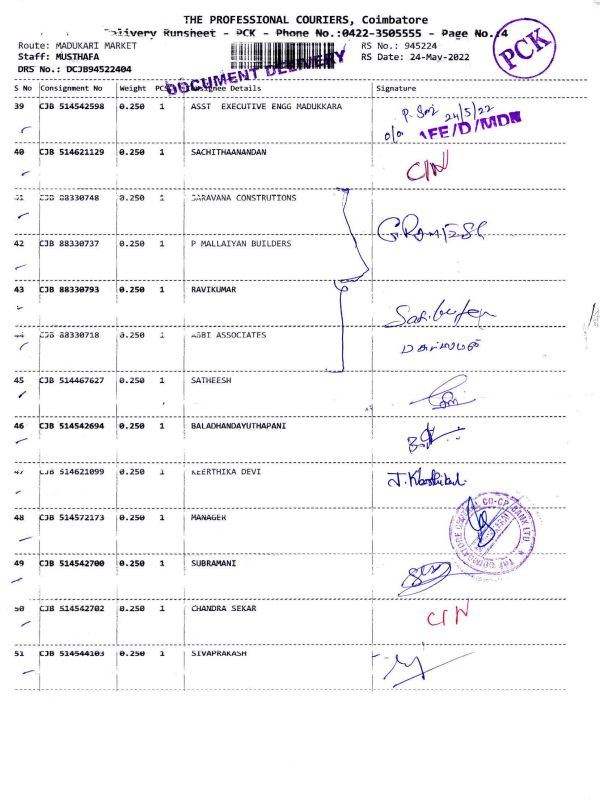 THE PROFESSIONAL COURIERS, Coimbatore
Delivery Runsheet - PCK - Phone No.:0422-3505555 - Page No.:4
Route: MADUKARI MARKET
RS No.: 945224
Staff: MUSTHAFA
RS Date: 24-May-2022
DRS No.: DCJB94522404
DOCUMENT DELIVERY
PCK
S No Consignment No Weight PCS Details Signature
39 CJB 514542598 0.250 1 ASST EXECUTIVE ENGG MADUKKARA
24/5/22
AFE/D/MDK
40 CJB 514621129 0.250 1 SACHITHAANANDAN
C/N
41 CJB 88330748 0.250 1 SARAVANA CONSTRUTIONS
42 CJB 88330737 0.250 1 P MALLAIYAN BUILDERS
43 CJB 88330793 0.250 1 RAVIKUMAR
44 CJB 88330718 0.250 1 ASSOCIATES
45 CJB 514467627 0.250 1 SATHEESH
46 CJB 514542694 0.250 1 BALADHANDAYUTHAPANI
47 CJB 514621099 0.250 1 KEERTHIKA DEVI
48 CJB 514572173 0.250 1 MANAGER
CO-OP BANK LTD
49 CJB 514542700 0.250 1 SUBRAMANI
50 CJB 514542702 0.250 1 CHANDRA SEKAR
C/N
51 CJB 514544103 0.250 1 SIVAPRAKASH